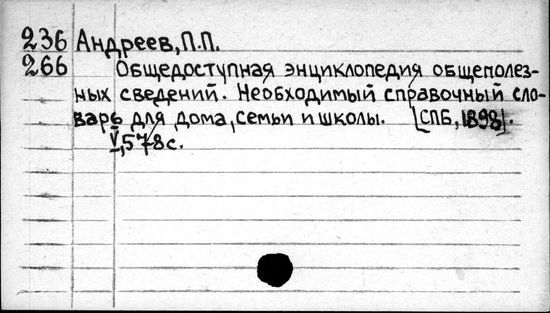 236 Андреев, П.П.
266 Общедоступная энциклопедия общеполез-
ных сведений. Необходимый справочный сло-
варь для дома, семьи и школы. [СПБ, 1898].
V, 578 с.